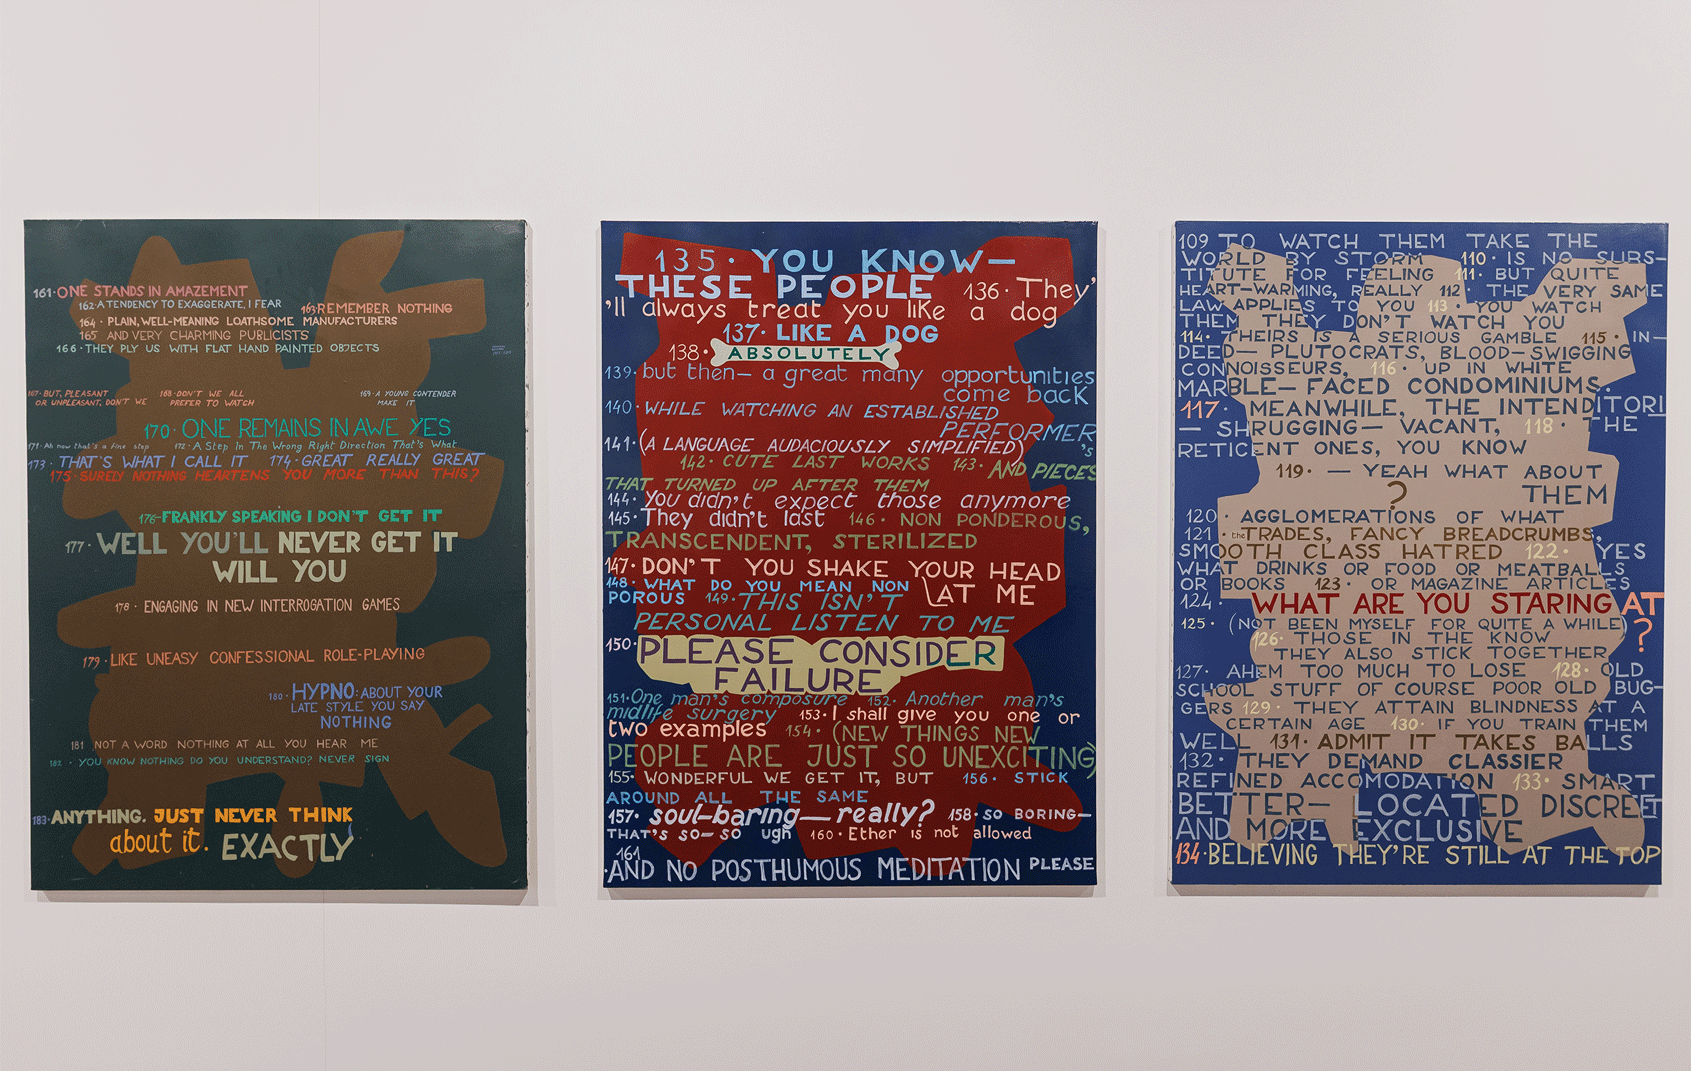 161·ONE STANDS IN AMAZEMENT
162·A TENDENCY TO EXAGGERATE, I FEAR
163·REMEMBER NOTHING
164· PLAIN, WELL-MEANING LOATHSOME MANUFACTURERS
165 AND VERY CHARMING PUBLICISTS
166·THEY PLY US WITH FLAT HAND PAINTED OBJECTS
167·BUT, PLEASANT
OR UNPLEASANT, DON'T WE
168·DON'T WE ALL
PREFER TO WATCH
169·A YOUNG CONTENDER
MAKE IT
170· ONE REMAINS IN AWE YES
171·Ah now that's a fine step 172·A Step In The Wrong Right Direction That's What
173· THAT'S WHAT I CALL IT 174·GREAT REALLY GREAT
175·SURELY NOTHING HEARTENS YOU MORE THAN THIS?
176-FRANKLY SPEAKING I DON'T GET IT
177· WELL YOU'LL NEVER GET IT
WILL YOU
178· ENGAGING IN NEW INTERROGATION GAMES
179· LIKE UNEASY CONFESSIONAL ROLE-PLAYING
180· HYPNO: ABOUT YOUR
LATE STYLE YOU SAY
NOTHING
181 NOT A WORD NOTHING AT ALL YOU HEAR ME
182 · YOU KNOW NOTHING DO YOU UNDERSTAND? NEVER SIGN
183·ANYTHING. JUST NEVER THINK
about it. EXACTLY
135· YOU KNOW—
THESE PEOPLE 136· They'
'll always treat you like a dog
137· LIKE A DOG
138· ABSOLUTELY
139· but then— a great many opportunities
come back
140· WHILE WATCHING AN ESTABLISHED
PERFORMER
'S
141·(A LANGUAGE AUDACIOUSLY SIMPLIFIED)
142· CUTE LAST WORKS 143· AND PIECES
THAT TURNED UP AFTER THEM
144· You didn't expect those anymore
145· They didn't last 146· NON PONDEROUS,
TRANSCENDENT, STERILIZED
147· DON'T YOU SHAKE YOUR HEAD
AT ME
148· WHAT DO YOU MEAN NON
POROUS 149·THIS ISN'T
PERSONAL LISTEN TO ME
150· PLEASE CONSIDER
FAILURE
151·One man's composure 152· Another man's
midlife surgery 153·I shall give you one or
two examples 154· (NEW THINGS NEW
PEOPLE ARE JUST SO UNEXCITING)
155· WONDERFUL WE GET IT, BUT 156· STICK
AROUND ALL THE SAME
157· soul-baring—really? 158·SO BORING—
THAT'S SO-SO ugh 160· Ether is not allowed
161
·AND NO POSTHUMOUS MEDITATION PLEASE
109 TO WATCH THEM TAKE THE
WORLD BY STORM 110· IS NO SUBS-
TITUTE FOR FEELING 111· BUT QUITE
HEART-WARMING, REALLY 112· THE VERY SAME
LAW APPLIES TO YOU 113· YOU WATCH
THEM THEY DON'T WATCH YOU
114· THEIRS IS A SERIOUS GAMBLE 115· IN-
DEED— PLUTOCRATS, BLOOD-SWIGGING
CONNOISSEURS, 116· UP IN WHITE
MARBLE-FACED CONDOMINIUMS.
117· MEANWHILE, THE INTENDITORI
— SHRUGGING— VACANT, 118· THE
RETICENT ONES, YOU KNOW
119· — YEAH WHAT ABOUT
? THEM
120· AGGLOMERATIONS OF WHAT
121 ·the TRADES, FANCY BREADCRUMBS,
SMOOTH CLASS HATRED 122· YES
WHAT DRINKS OR FOOD OR MEATBALLS
OR BOOKS 123· OR MAGAZINE ARTICLES
124· WHAT ARE YOU STARING AT
?
125· (NOT BEEN MYSELF FOR QUITE A WHILE)
126· THOSE IN THE KNOW
THEY ALSO STICK TOGETHER
127· AHEM TOO MUCH TO LOSE 128· OLD
SCHOOL STUFF OF COURSE POOR OLD BUG-
GERS 129· THEY ATTAIN BLINDNESS AT A
CERTAIN AGE 130· IF YOU TRAIN THEM
WELL 131· ADMIT IT TAKES BALLS
132· THEY DEMAND CLASSIER
REFINED ACCOMODATION 133· SMART
BETTER— LOCATED DISCREET
AND MORE EXCLUSIVE
134·BELIEVING THEY'RE STILL AT THE TOP